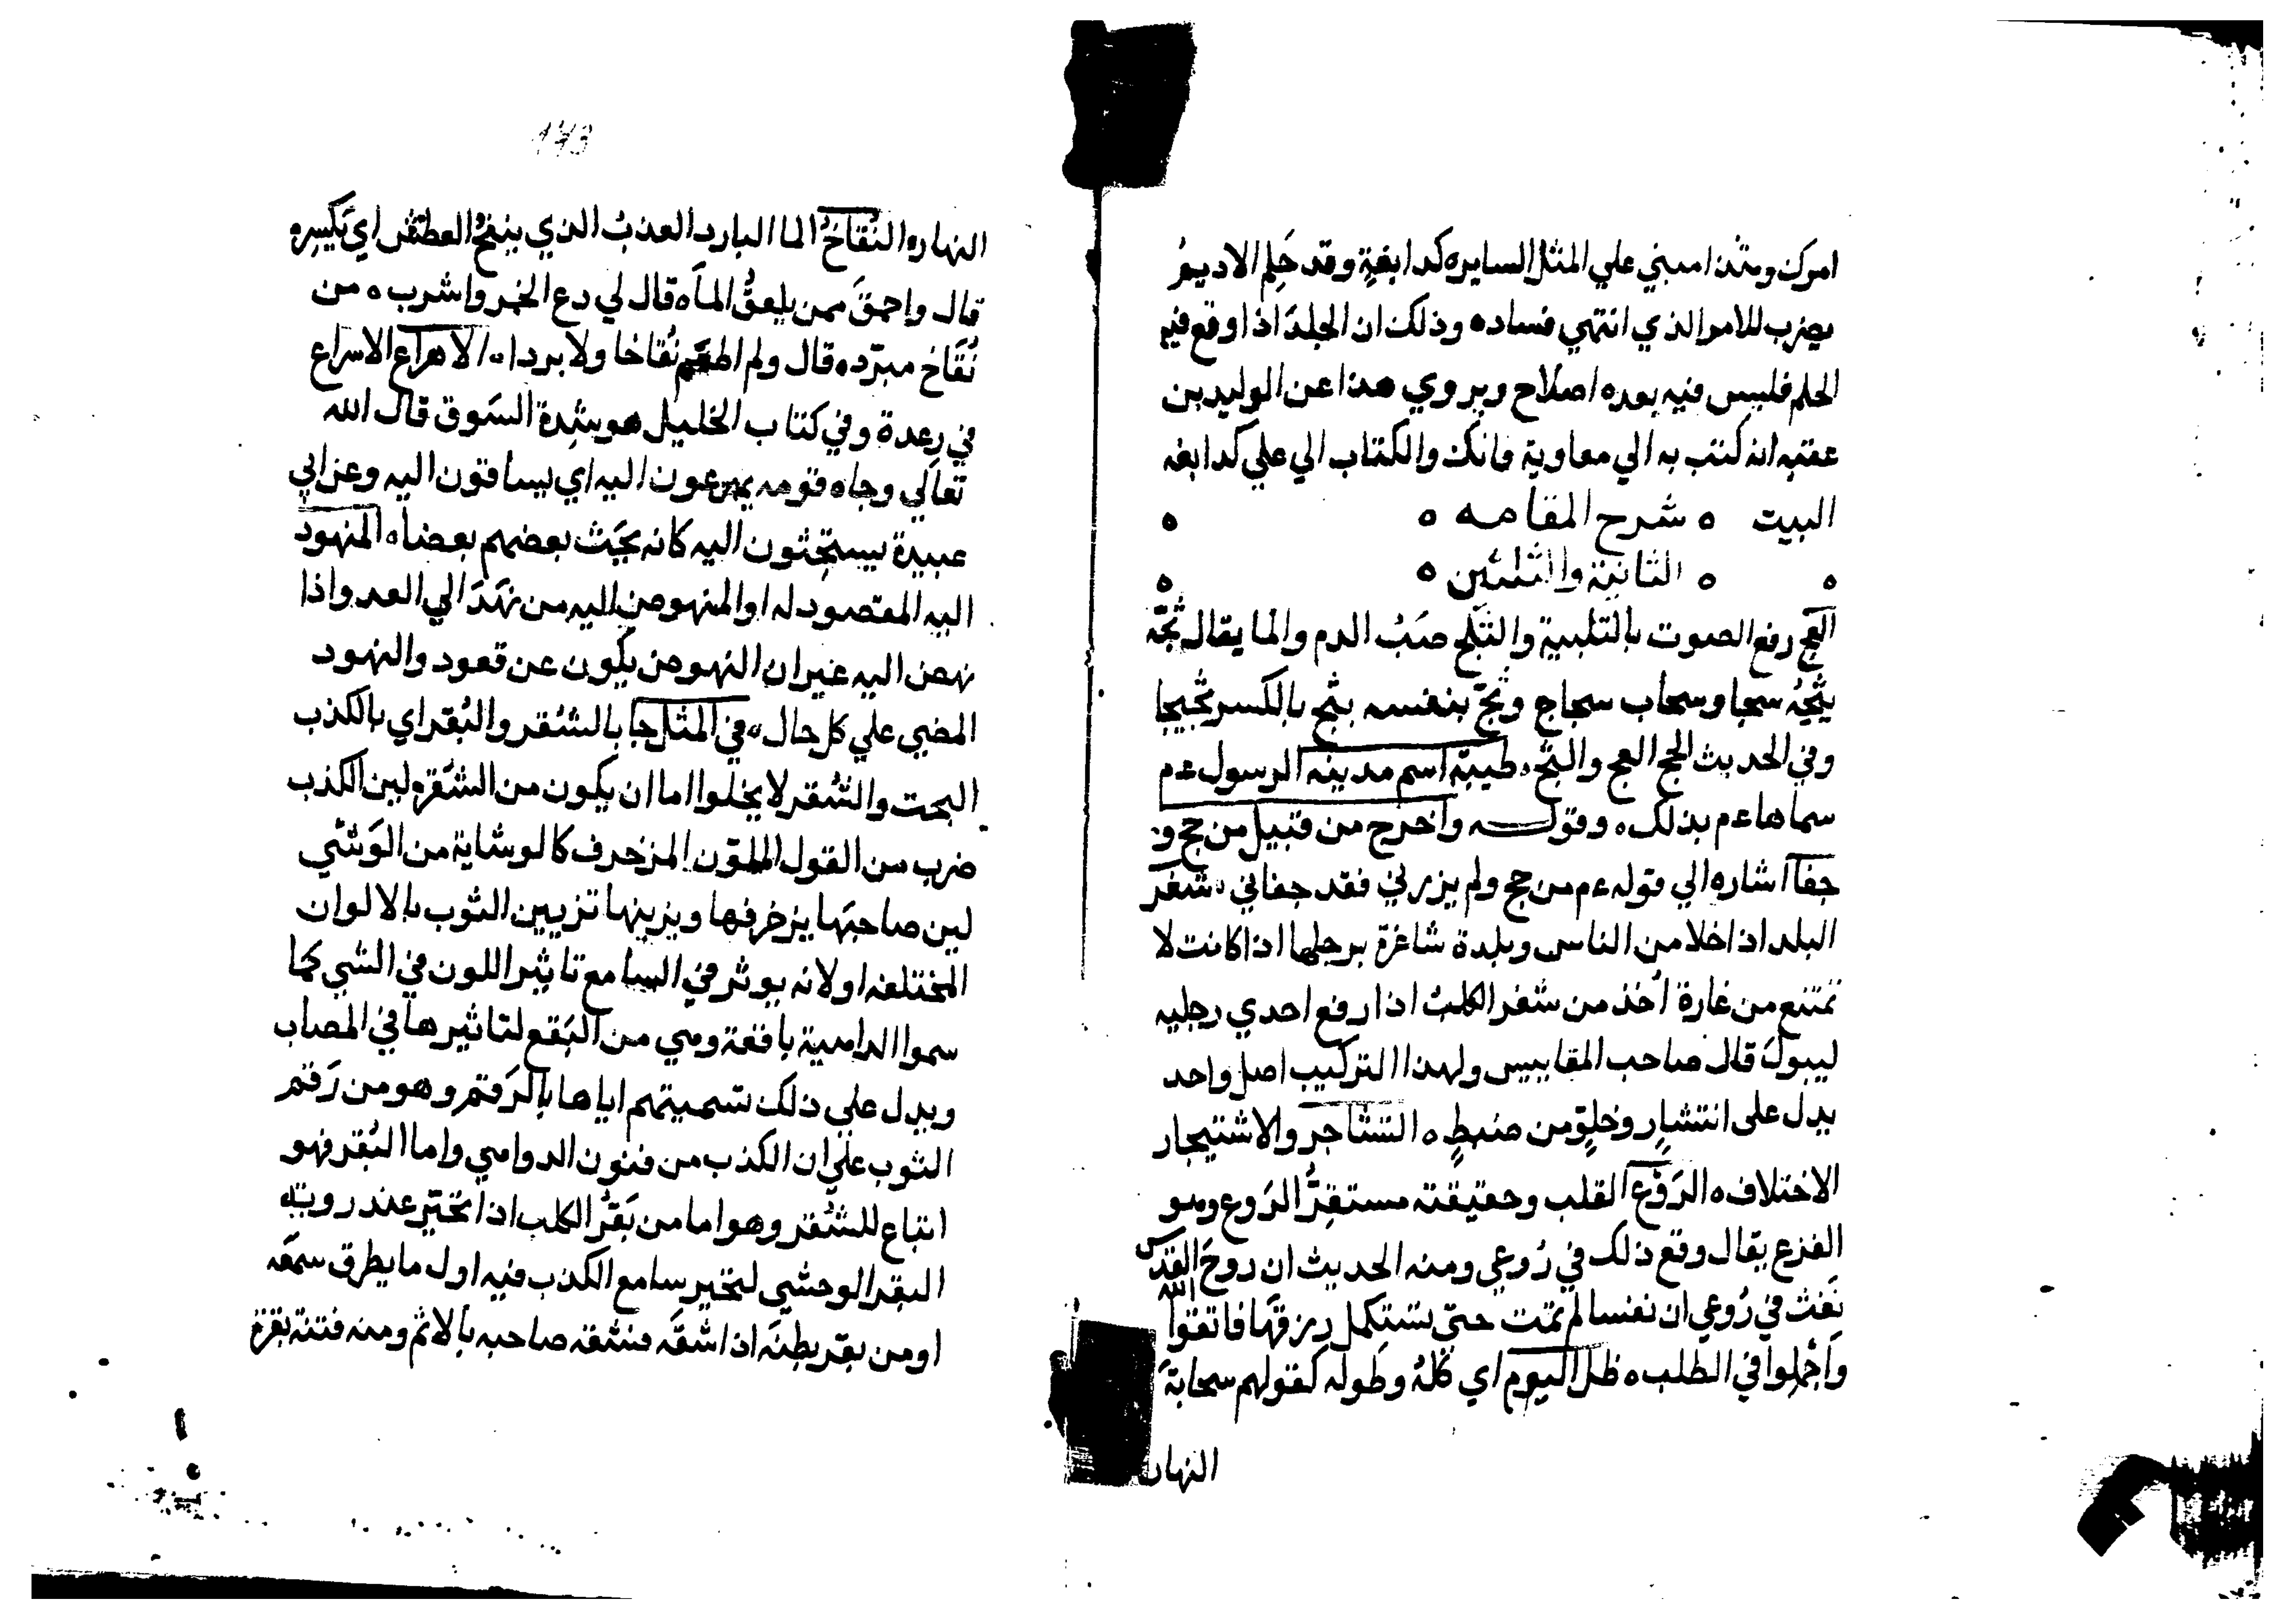 امرك ومثذا مبني علي المثل السايره كدابغةٍ وقد حَلِم الاديمُ
يضرب للامر الذي انتهي فساده وذلك ان الجلدَ اذا وقع فيه
الحلم فليس فيه بعده اصلاح ويروي هذا عن الوليد بن
عقبه انه كتب به الي معاوية فانك والكتاب الي علي كدابغه
البيت ه شرح المقامه ه ه
ه ه الثانية والثلثين ه ه
العج رفع الصوت بالتلبية والثج صَبُ الدم والما يقال ثجّه
يثجُه سجا وسحاب سجاج وثجّ بنفسه يثج بالكسر ثجيجا
وفي الحديث الحج العج والثج ه طيبة اسم مدينه الرسول ءم
سماها ءم بذلك ه وقوله واخرج من قبيل من حج و
جفا اشاره الي قوله ءم من حج ولم يزرني فقد جفاني ه شغر
البلد اذا خلا من الناس وبلدة شاغرة برجلها اذا كانت لا
تمتنع من غارة اُخذ من شغر الكلبُ اذا رفع احدي رجليه
ليبولَ قال صاحب المقاييس ولهذا التركيب اصل واحد
يدل على انتشارٍ وخلوٍّ من ضبطٍ ه التشاجر والاشتيجار
الاختلاف ه الرَوْع القلب وحقيقته مستقِرُّ الرَوع وهو
الفزع يقال وقع ذلك في رُوعي ومنه الحديث ان روحَ القدس
نَفَث في رُوعي ان نفسا لم تمت حتّي تستكمل رزقها فاتقوا الله
وَاَجْمِلوا في الطلب ه ظل اليوم اي كلهُ وطوله كقولهم سحابةَ
النهار
173
النهار ه والنُقاخُ الما البارد العذبُ الذي ينقخُ العطش اي يَكسِره
قال واحمقَ ممن يلعقُ المآ ه قال لي دع الخمر واشرب ه من
نُقَاخ مبرّد ه قال ولم اطعم نُقاخا ولا بردا ه الاهراع الاسراع
في رِعدة وفي كتاب الخليل هو شِدة السَوق قال الله
تعاَلي وجاه قومه يهرعون اليه اي يساقون اليه وعن ابي
عبيدة يستحِثون اليه كانه يَحِث بعضهم بعضا ه المنهود
اليه المقصود له او المنهوض اليه من نَهَدَ الي العدو اذا
نهض اليه غير ان النهوض يكون عن قعود والنهود
المضي علي كل حال ه في المثل جا بالشُقر والبُقر اي بالكذب
البحت والشُقر لا يخلوا اما ان يكون من الشُقره لين الكذب
ضرب من القول الملوّن المزخرف كالوشاية من الوَشْي
لين صاحبَها يزخرفها ويزينها تزيين الثوب بالالوان
المختلفه او لانه يوثر في السامع تاثير اللون في الشي كما
سموا الداهية باقعة وهي من البَقع لتاثيرها في المصاب
ويدل علي ذلك تسميتهم اياها بالرَقم وهو من رَقم
الثوب علي ان الكذب من فنون الدواهي واما البُقر فهو
اتباع للشُقر وهو اما من بَقُر الكلب اذا تحيّر عند رويته
البقر الوحشي لتحير سامع الكذب فيه اول ما يطرق سمعَه
او من بقر بطنَه اذا شقَّه فشقه صاحبه بالاثم ومنه فتنه بقره